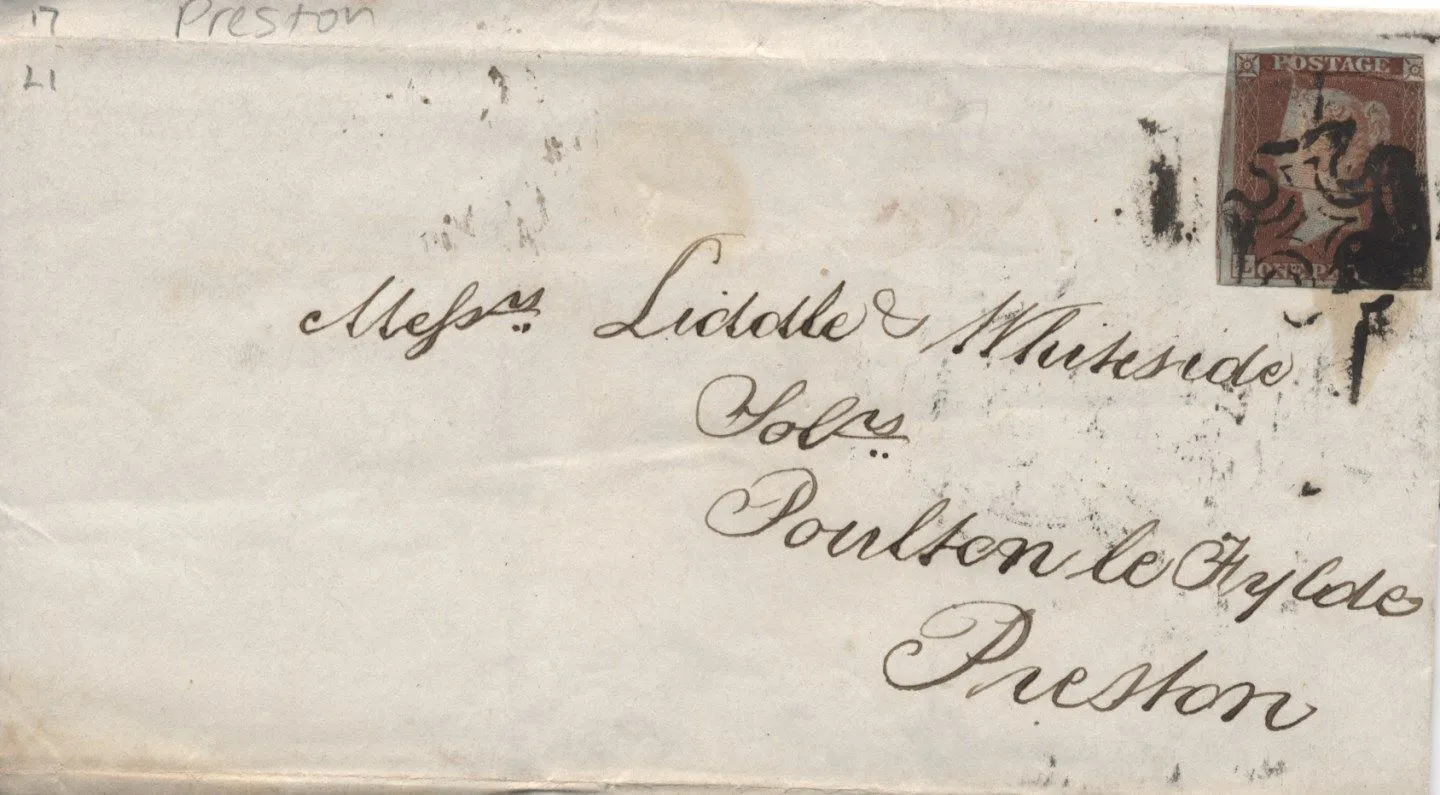 17 Preston
21
POSTAGE
ONE P
Messrs Liddle & Whiteside
Solrs
Poulton le Fylde
Preston